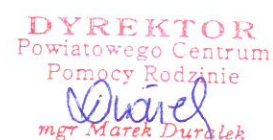 DYREKTOR
Powiatowego Centrum
Pomocy Rodzinie
mgr Marek Durałek